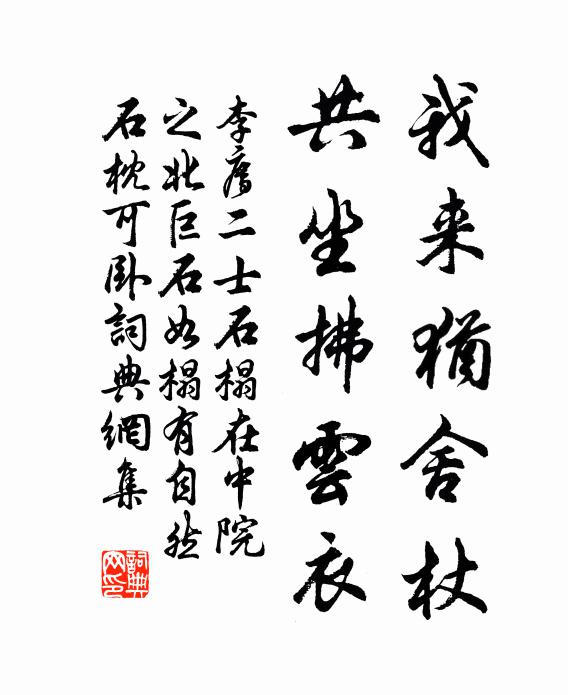 我来猶舍杖
共坐拂雲衣
李膺二士石榻在中院
之北巨石如榻有自然
石枕可卧詞典網集
詞典
网印